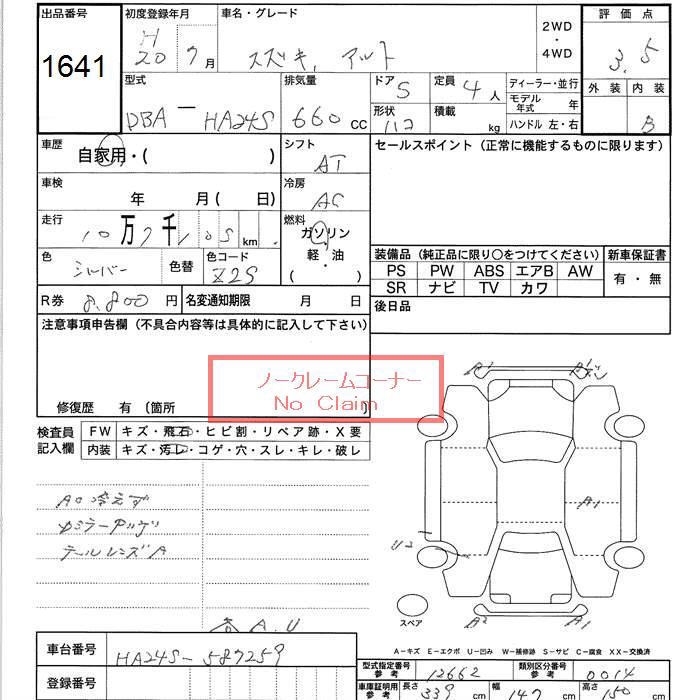 出品番号 初度登録年月 車名・グレード 2WD 評価点
1641 H20 7月 スズキ, アルト ・4WD 3.5
外装 内装
B
型式 排気量 ドア 5 定員 4人 ディーラー・並行
DBA-HA24S 660 cc 形状 積載 kg モデル年式 年
ハンドル 左・右
車歴 自家用・( ) シフト AT セールスポイント (正常に機能するものに限ります)
車検 年 月( 日) 冷房 AC
走行 10万7千105km 燃料 ガソリン
軽・油
( )
色 シルバー 色替 色コード Z2S
装備品 (純正品に限り○をつけてください) 新車保証書
PS PW ABS エアB AW 有・無
SR ナビ TV カワ
R券 8,800円 名変通知期限 月 日 後日品
注意事項申告欄 (不具合内容等は具体的に記入して下さい)
ノークレームコーナー
No Claim
修復歴 有 (箇所 )
検査員記入欄 FW キズ・飛石・ヒビ割・リペア跡・X要
内装 キズ・汚レ・コゲ・穴・スレ・キレ・破レ
A1
A1
A1
U2
A2
A1
AC冷えず
テールレンズA
各A.U
スペア
A-キズ E-エクボ U-凹み W-補修跡 S-サビ C-腐食 XX-交換済
車台番号 HA24S-587259
登録番号
型式指定番号参考 12662 類別区分番号参考 0014
車庫証明用参考 長さ 339cm 幅 147cm 高さ 150cm